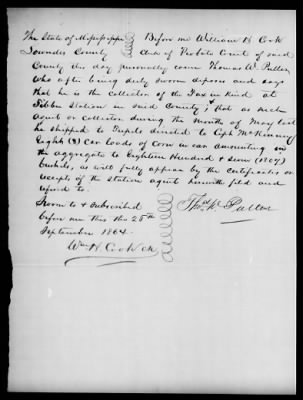 The State of Mississippi } Before me William H Cook
Lowndes County } Clerk of Probate Court of said
County this day personally came Thomas W. Puller
who after being duly sworn deposes and says
that he is the Collector of the Tax in kind at
Tibbee Station in said County, & that as such
Agent or Collector during the Month of May last
he shipped to Tupelo directed to Capt McKinney
Eights (8) Car loads of Corn in ear amounting in
the aggregate to Eighteen Hundred & seven (1807)
bushels, as will fully appear by the certificates or
receipts of the station agent herewith filed and
refered to.
Sworn to & subscribed
before me this the 28th
September 1864.
Thos W. Puller
Wm H. Cook Clk